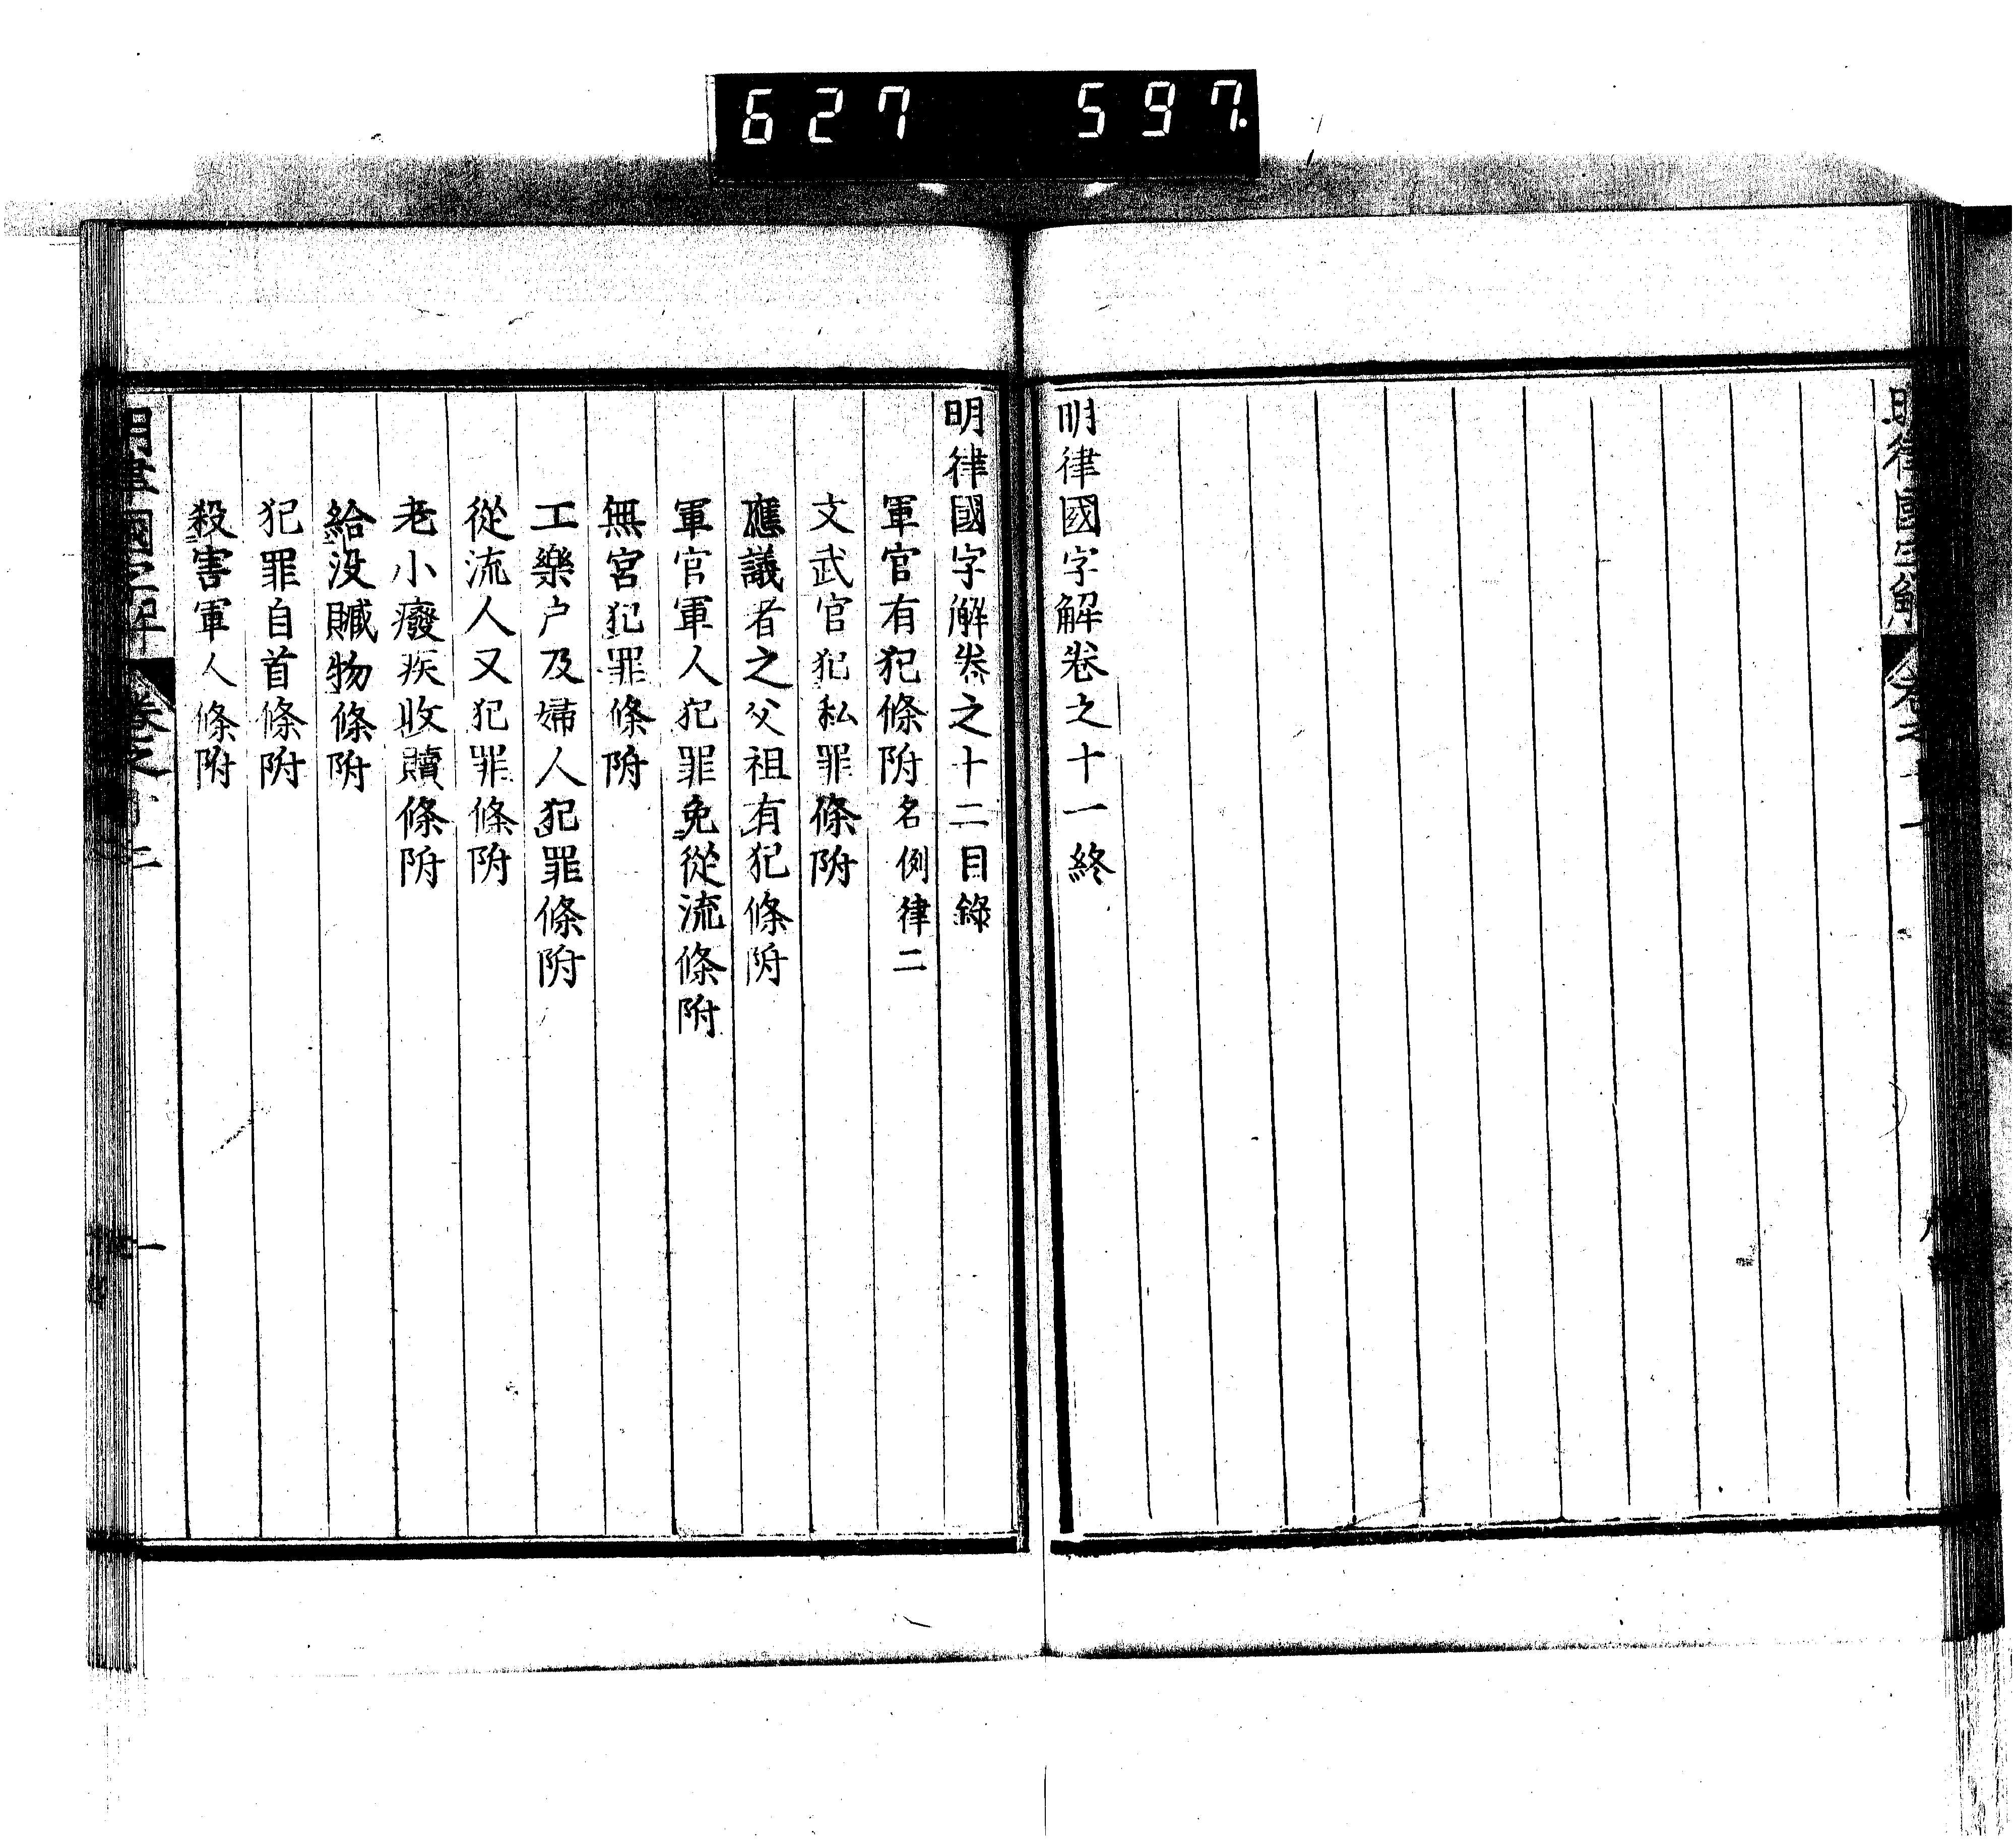 627 597
明律國字解
明律國字解卷之十一終
明律國字解卷之十二目錄
軍官有犯條附名例律二
文武官犯私罪條附
應議者之父祖有犯條附
軍官軍人犯罪免從流條附
無官犯罪條附
工樂户及婦人犯罪條附
從流人又犯罪條附
老小癈疾收贖條附
給没贓物條附
犯罪自首條附
殺害軍人條附
明律國字解 卷之
一